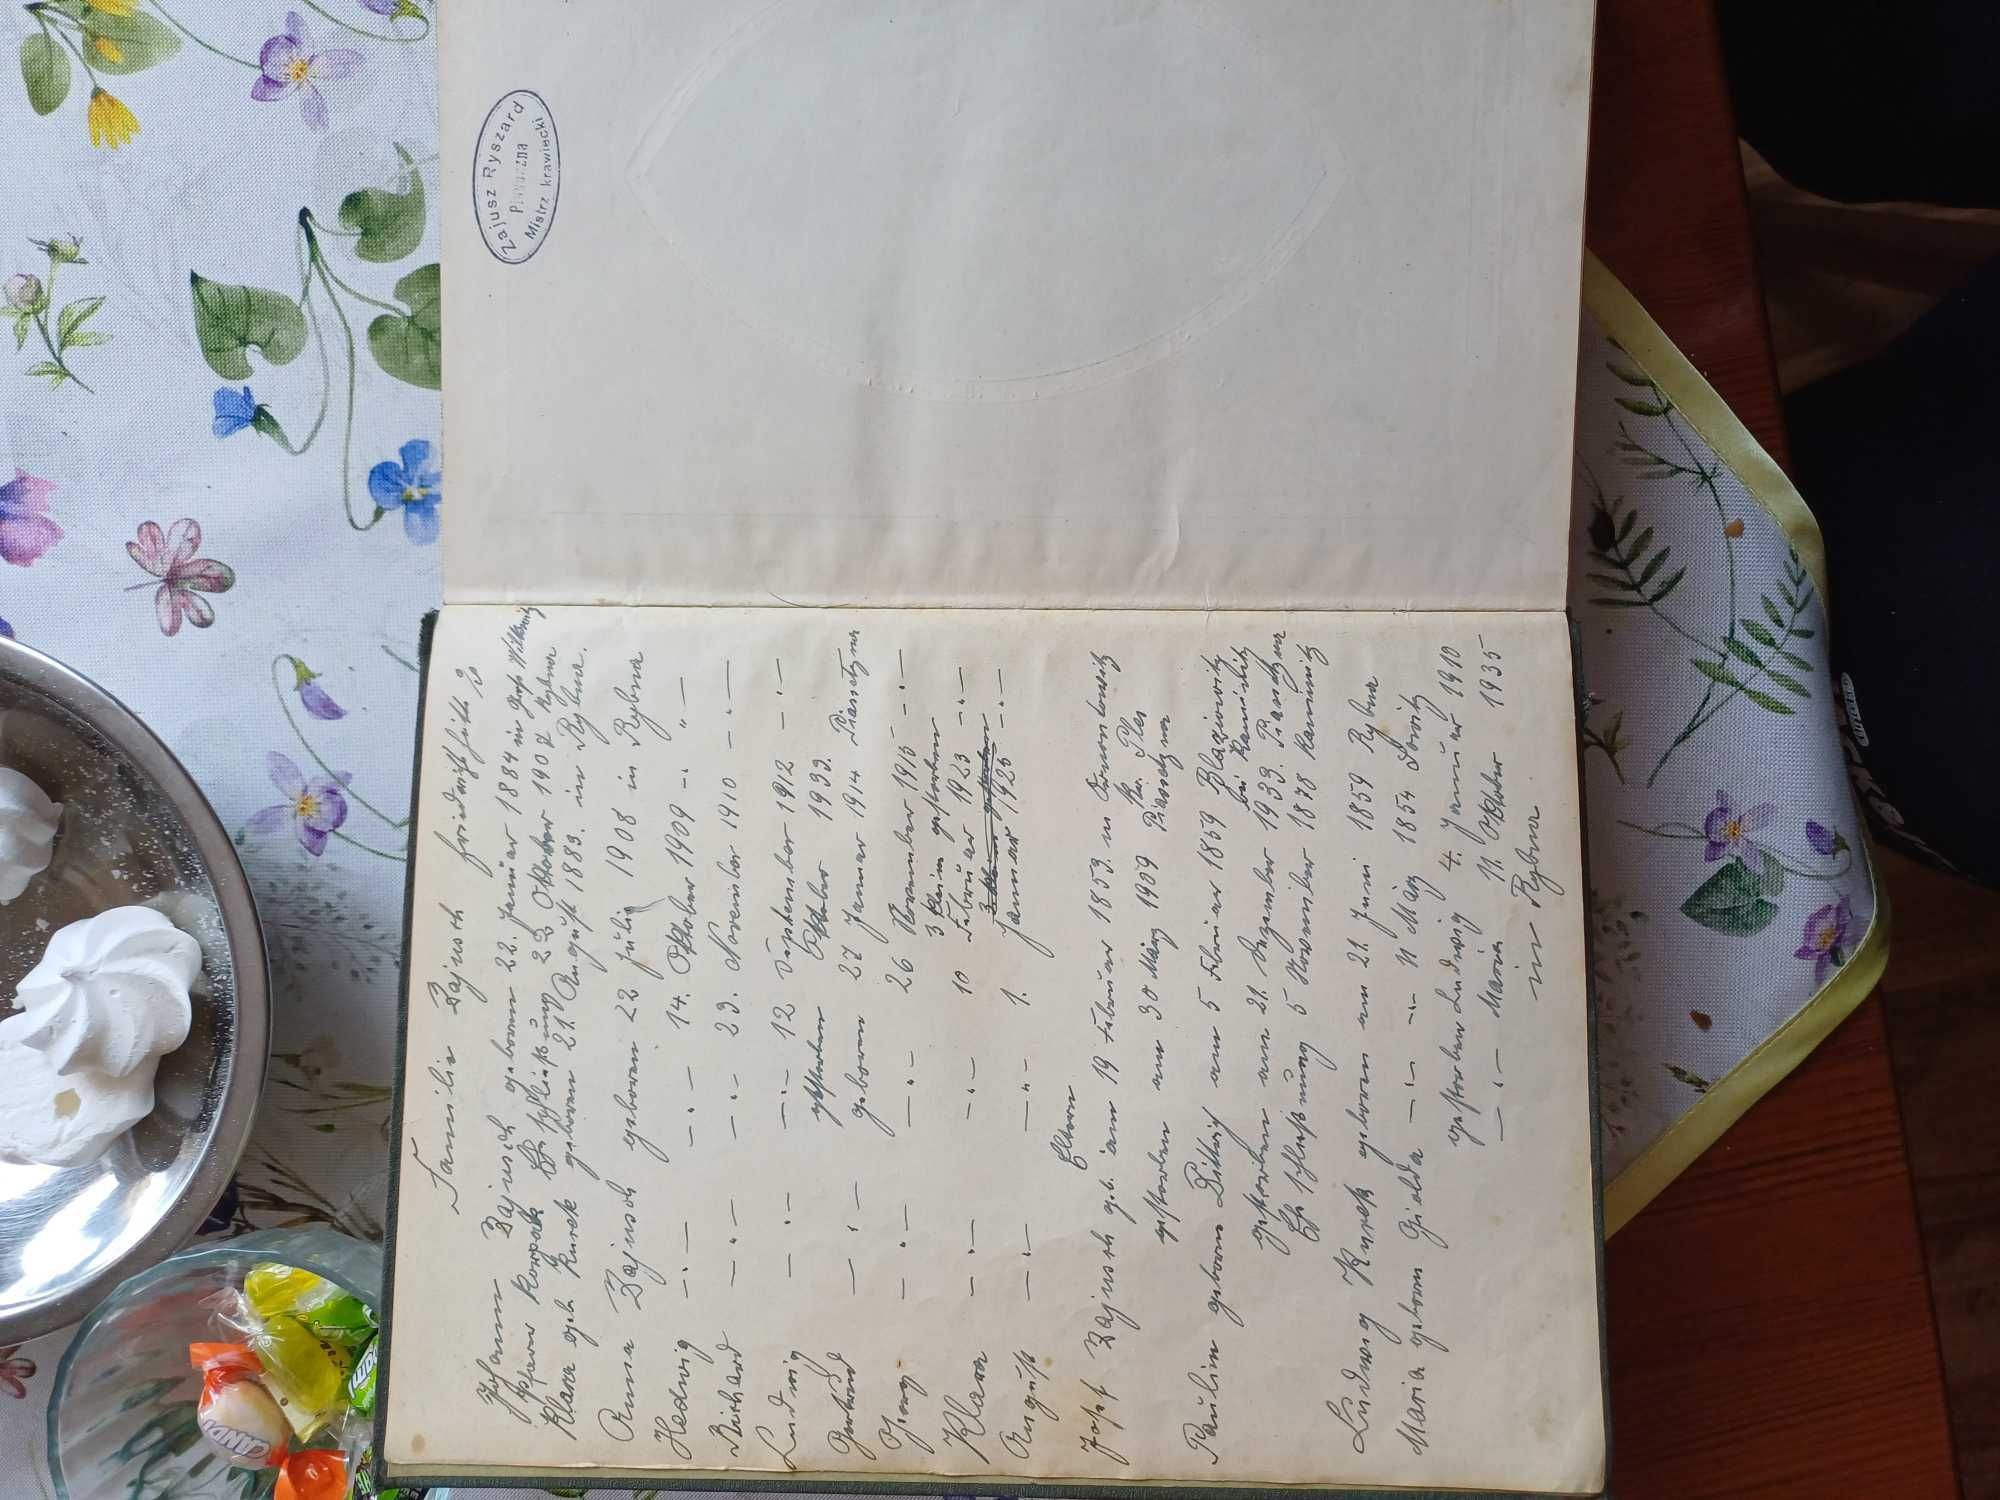 Familie Zajusch
Johann Zajusch geboren 22. Januar 1884 in
Ehschließung 22 Oktober 1907 Rybna
Klara geb. Kurek geboren 21. August 1883. in Rybna.
Anna Zajusch geboren 22 Juli 1908 in Rybna
Hedwig —.— —.— 14. Oktober 1909 —. „ —
Richard —.— —.— 23. November 1910 —.—
Ludwig —.— —.— 12 September 1912 —.—
gestorben Oktober 1932.
Gertrud —.— geboren 27 Januar 1914 Piassetzna
Georg —.— —.— 26 November 1915 —.—
3 klein gestorben
Klara —.— —.— 10 Februar 1923 —.—
August —.— —.— 1. Januar 1925 —.—
Eltern
Josef Zajusch geb. am 19 Februar 1853. in
gestorben am 30 März 1909 Piassetzna
Paulin geboren am 5 Februar 1859
gestorben am 21. Dezember 1933. Piassetzna
Ehschließung 5 November 1878 Kaminitz
Ludwig Kurek geboren am 21. Juni 1859 Rybna
Maria geboren Gielda —.— —.— 11 März 1854
gestorben Ludwig 4. Januar 1910
—.— Maria 11. Oktober 1935
in Rybna.
Zajusz Ryszard
Mistrz krawiecki
CANDY